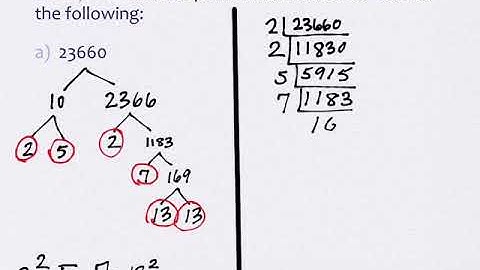 the following:
a) 23660
10 2366
2 5 2 1183
7 169
13 13
2 23660
2 11830
5 5915
7 1183
16